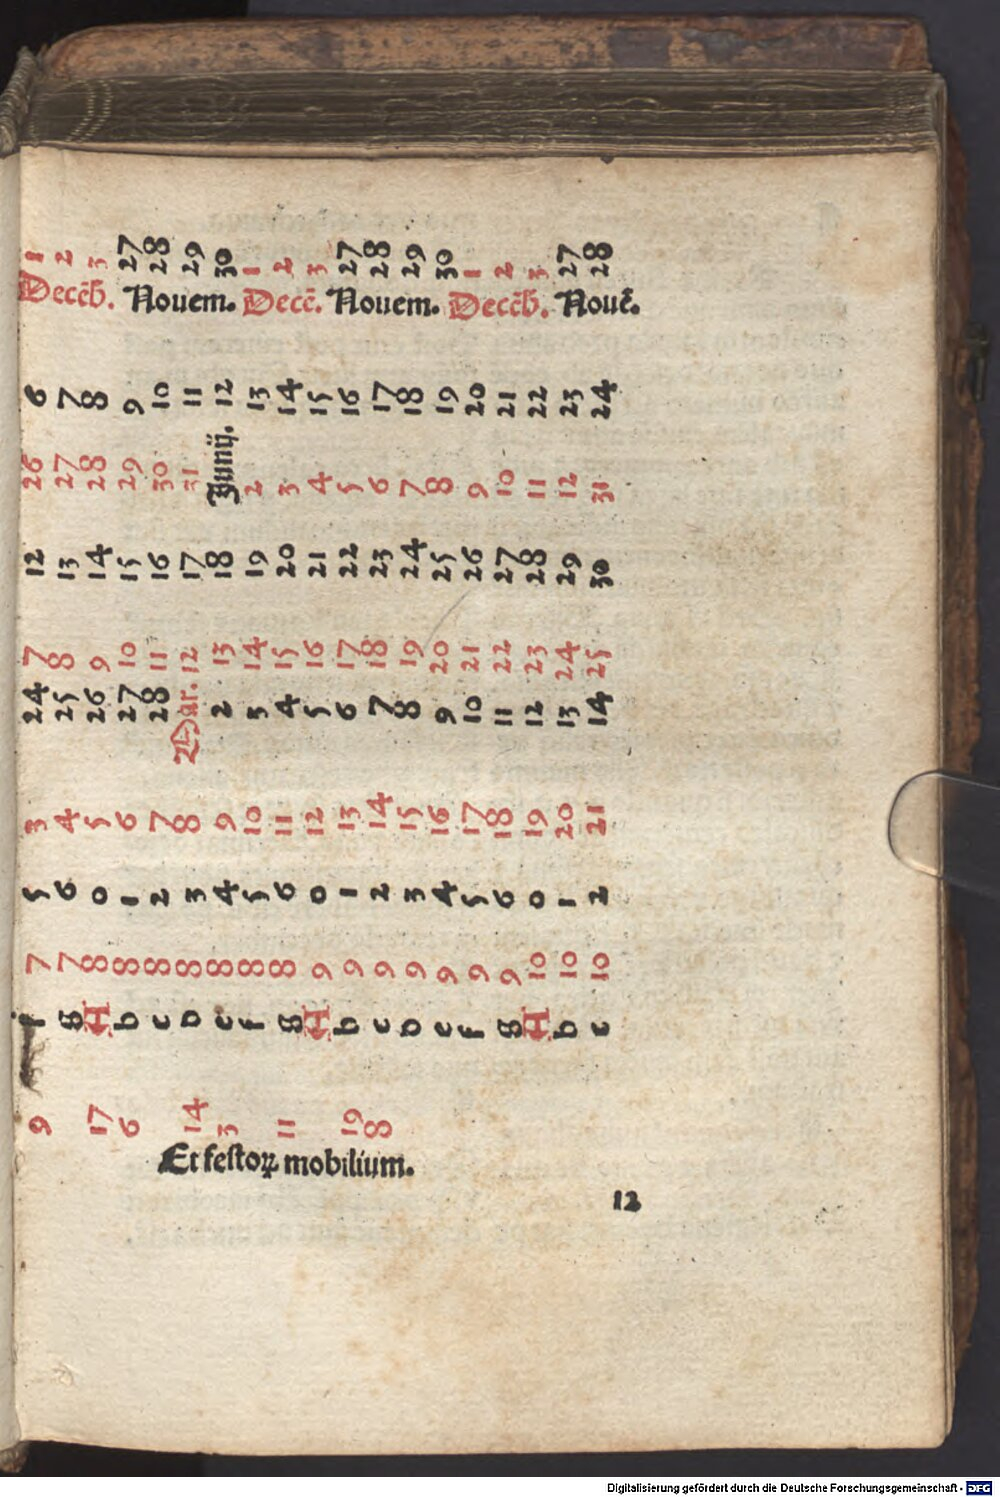 1 2 3 27 28 29 30 1 2 3 27 28 29 30 1 2 3 27 28
Decẽb. Nouem. Decẽ. Nouem. Decẽb. Nouẽ.
6 7 8 9 10 11 12 13 14 15 16 17 18 19 20 21 22 23 24
26 27 28 29 30 31 Junij. 2 3 4 5 6 7 8 9 10 11 12 31
12 13 14 15 16 17 18 19 20 21 22 23 24 25 26 27 28 29 30
7 8 9 10 11 12 13 14 15 16 17 18 19 20 21 22 23 24 25
24 25 26 27 28 Mar. 2 3 4 5 6 7 8 9 10 11 12 13 14
3 4 5 6 7 8 9 10 11 12 13 14 15 16 17 18 19 20 21
5 6 0 1 2 3 4 5 6 0 1 2 3 4 5 6 0 1 2
7 7 8 8 8 8 8 8 8 9 9 9 9 9 9 9 10 10 10
f g A b c d e f g A b c d e f g A b c
9 17 6 14 3 11 19 8
Et festoꝝ mobilium.
12
Digitalisierung gefördert durch die Deutsche Forschungsgemeinschaft - DFG